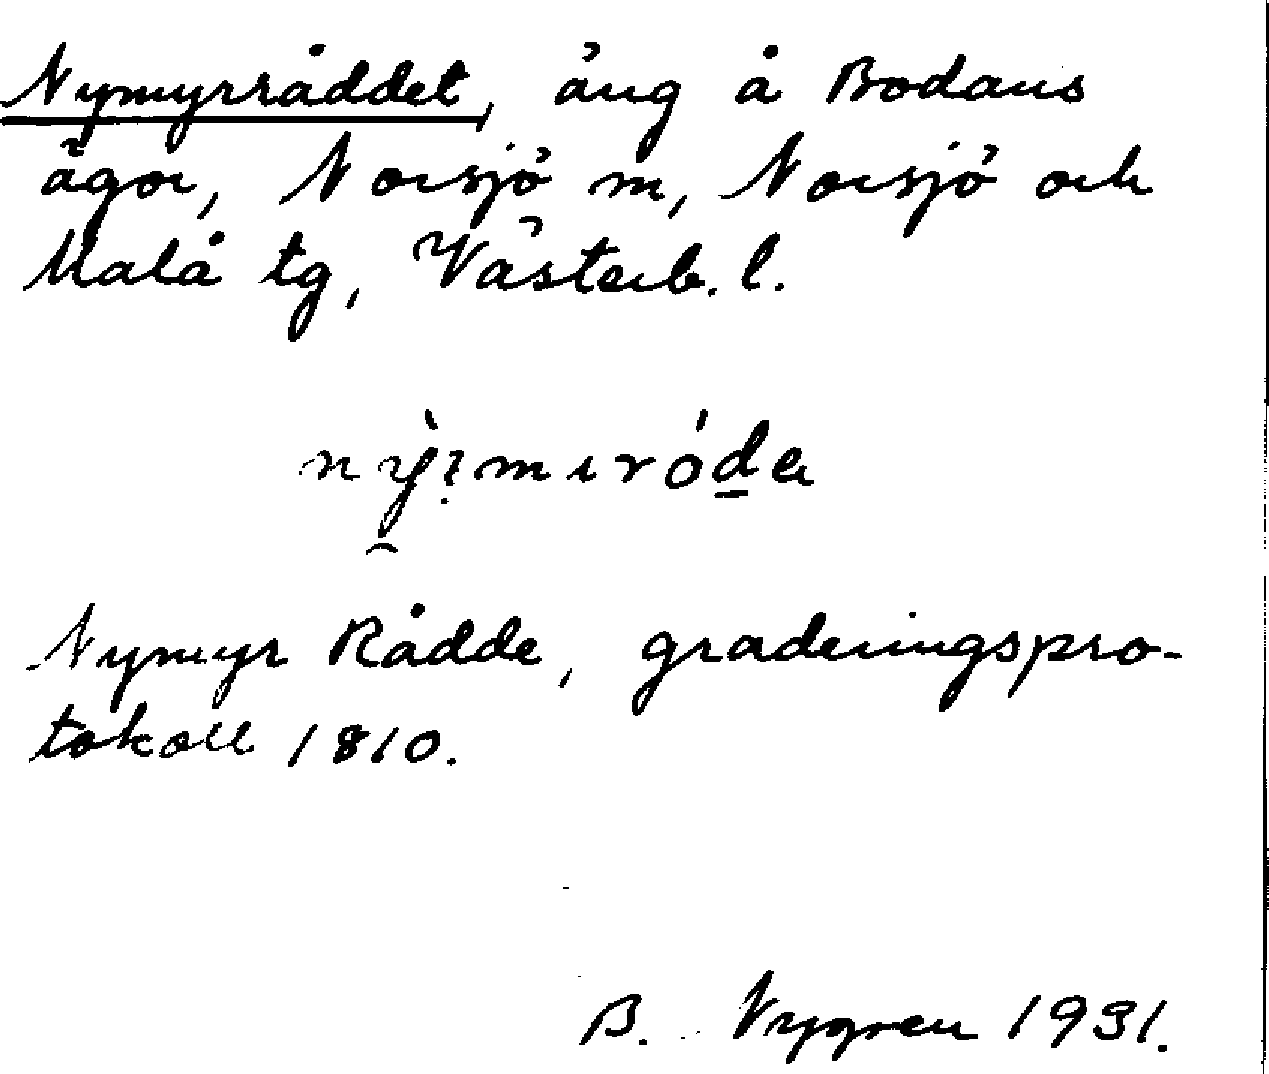 Nymyrråddet, äng å Bodans
ägor, Norsjö m, Norsjö och
Malå tg, Västerb. l.
Nymyr Rådde, graderingspro-
tokoll 1810.
B. Nygren 1931.